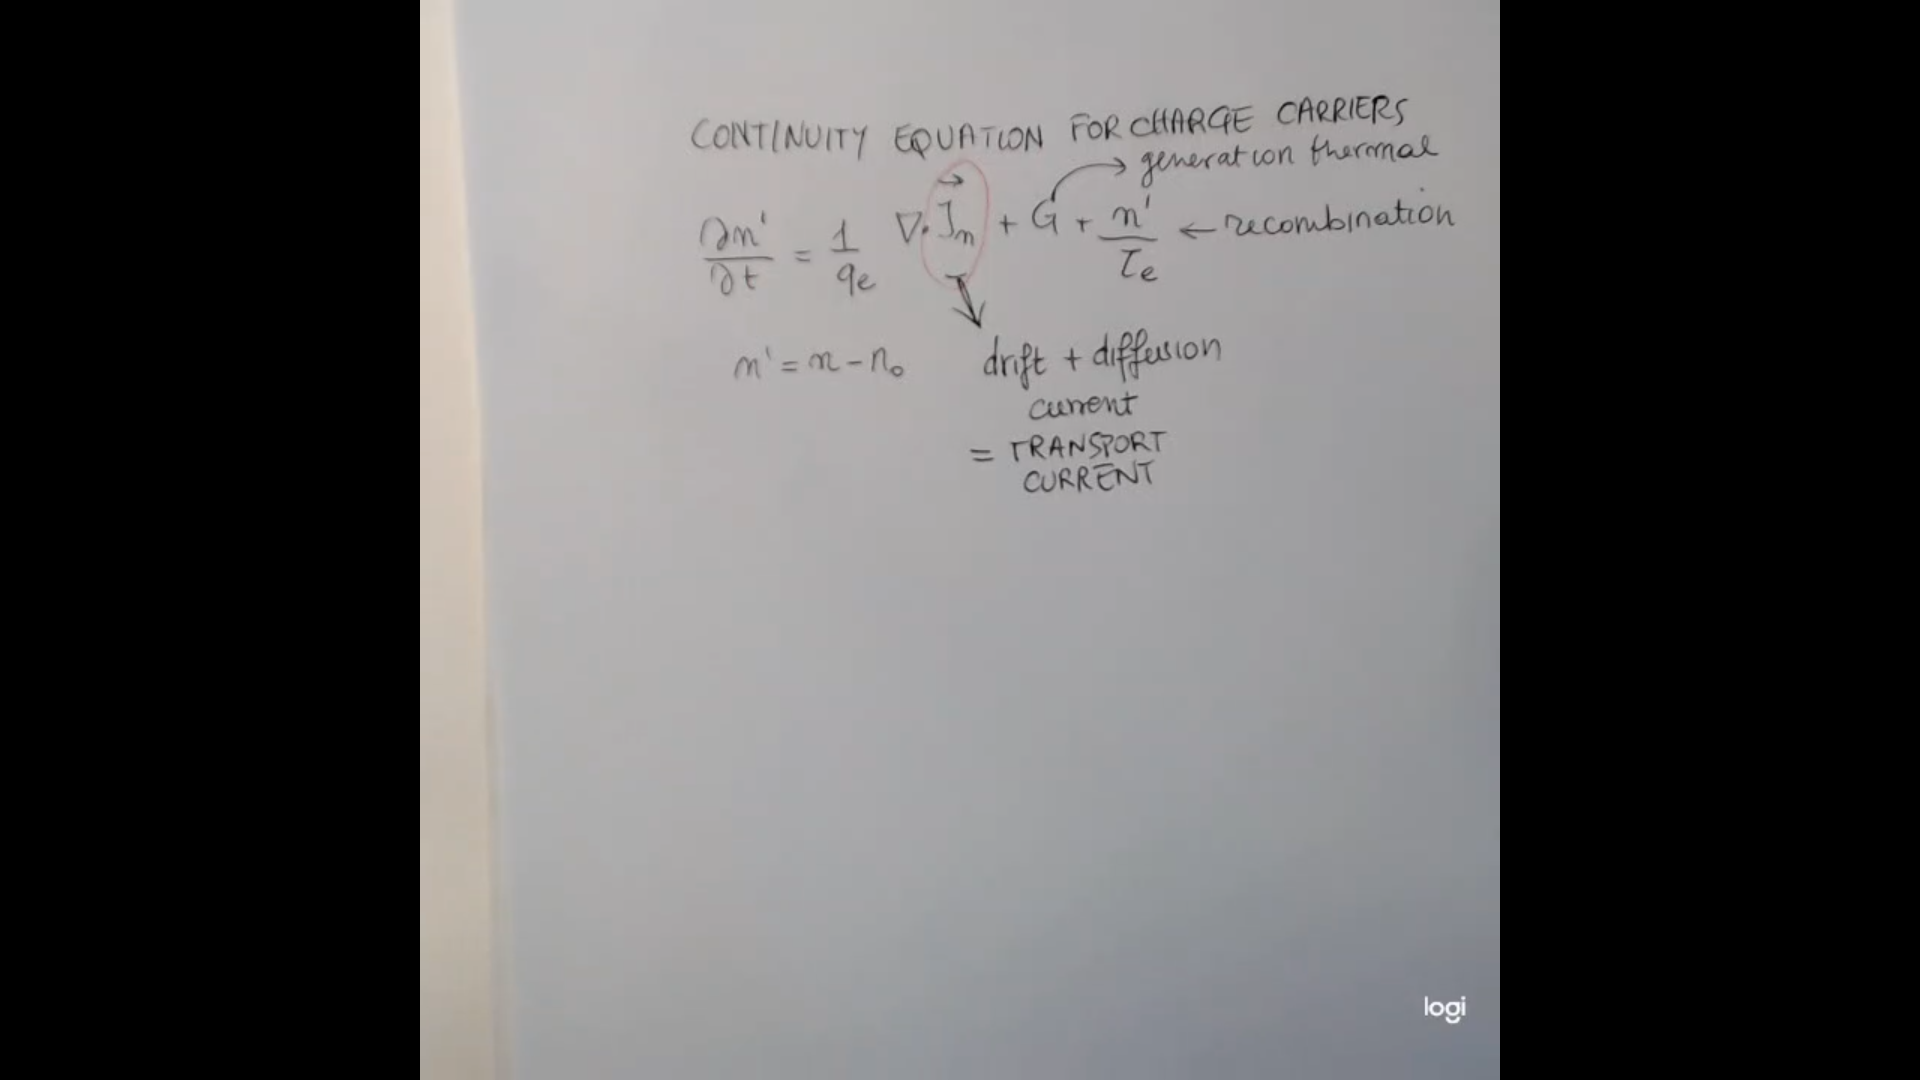 CONTINUITY EQUATION FOR CHARGE CARRIERS
generation thermal
∂n'/∂t = 1/qe ∇·J⃗n + G + n'/τe ← recombination
n' = n - n₀
drift + diffusion
current
= TRANSPORT
CURRENT
logi